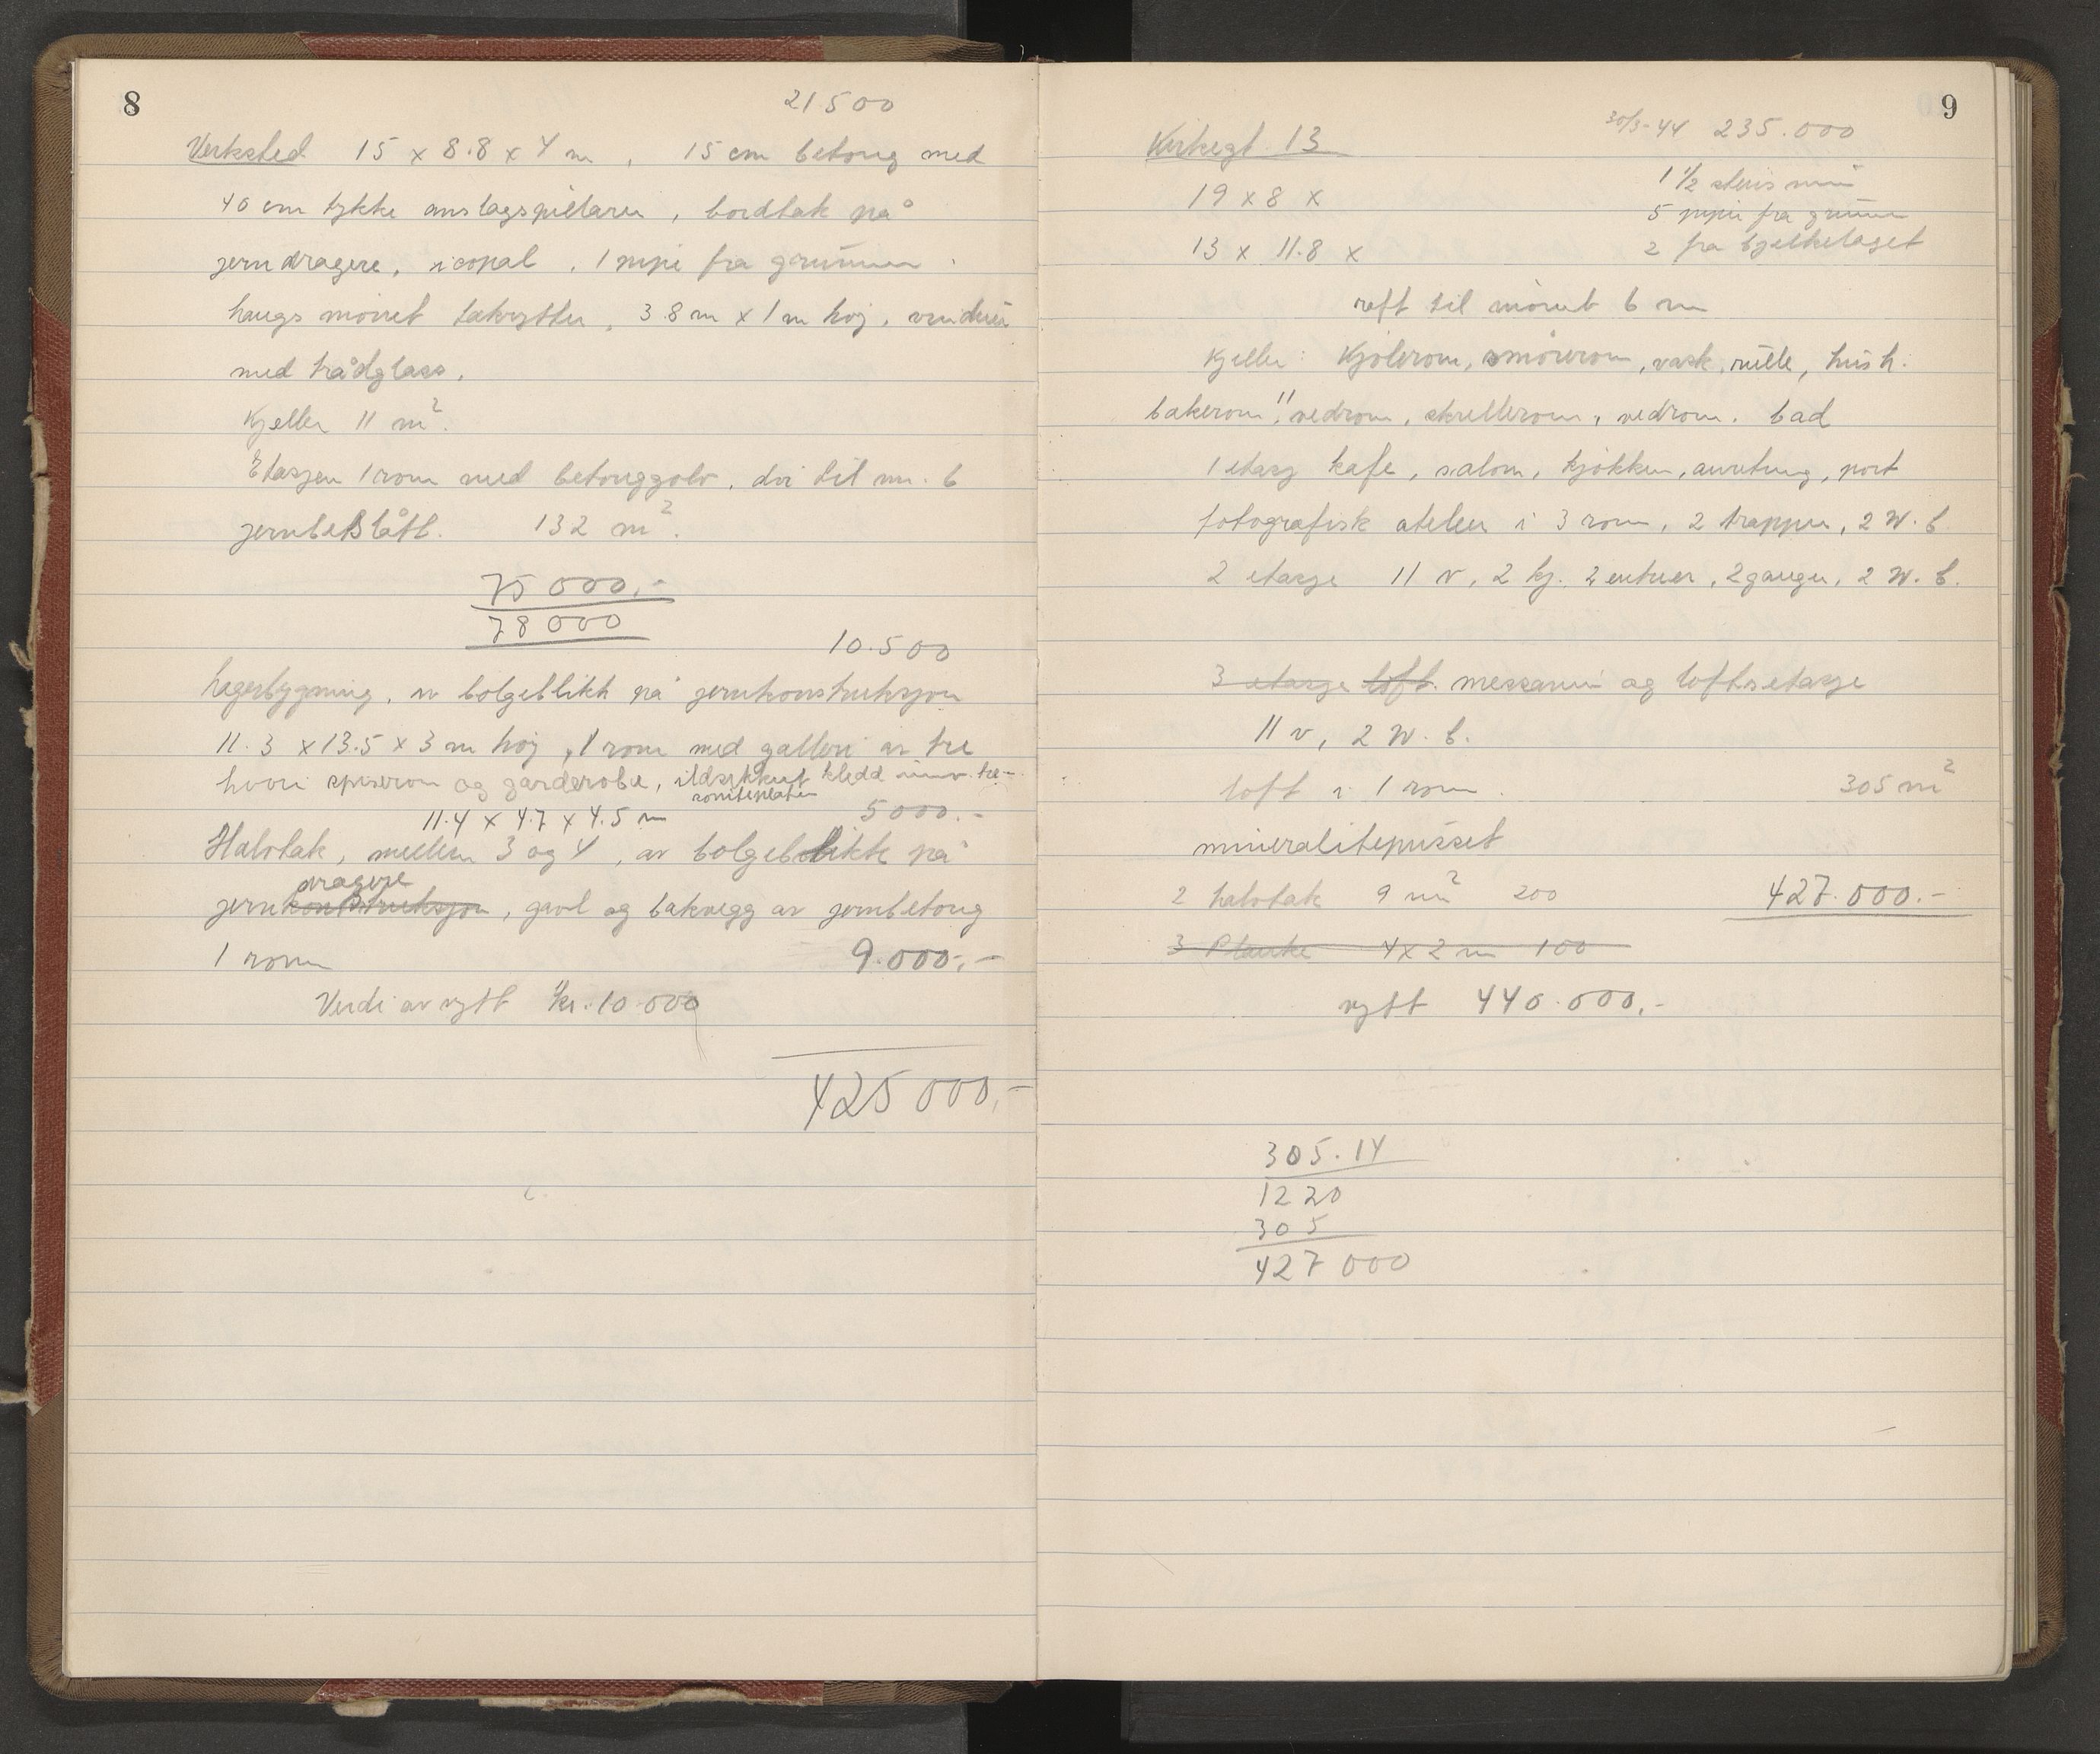 8
21500
Verksted 15 x 8.8 x 4 m, 15 cm betong med
40 cm tykke anslagspillarer, bordtak på
jerndragere, icopal. 1 pipe fra grunnen.
langs mönet takrytter, 3.8 m x 1 m höj, vinduer
med trådglass.
Kjeller 11 m².
Etasjen 1 rom med betonggolv, dör til nr. 6
jernbeslått. 132 m².
75 000.-
78 000
10.500
Lagerbygning, av bölgeblikk på jernkonstruksjon
11.3 x 13.5 x 3 m höj, 1 rom med galleri av tre
hvori spiserom og garderobe, ildsikkert kledd innv. tre-
ronitplater
11.4 x 4.7 x 4.5 m 5000.-
Halvtak, mellem 3 og 4, av bölgeblikk på
dragere
jernkonstruksjon, gavl og bakvegg av jernbetong
1 rom 9.000.-
Verdi av nytt kr. 10.000
425 000.-
9
30/3-44 235.000
Kirkegt. 13
1 ½ stens mur
19 x 8 x
5 piper fra grunnen
13 x 11.8 x
2 fra bjelkelaget
röft til mönet 6 m
Kjeller: Kjölerom, smörerom, vask, rulle, hush.
bakerom, vedrom, skrellerom, vedrom. bad
1 etasj kafe, salon, kjökken, anretning, port
fotografisk atelier i 3 rom, 2 trapper, 2 W. C.
2 etasje 11 v, 2 kj. 2 entreer, 2 ganger, 2 W. C.
3 etasje loft. messanin og loftsetasje
11 v, 2 W. C.
loft i 1 rom. 305 m²
mineralitepusset
2 halvtak 9 m² 200 427.000.-
3 Planke 4 x 2 m 100
nytt 440.000.-
305.14
1220
305
427 000